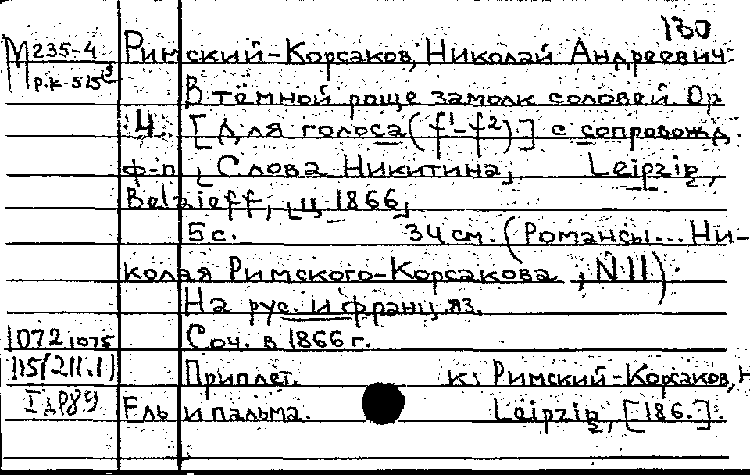 130
М 235-4 Римский-Корсаков, Николай Андреевич.
Р.К-515
В тёмной роще замолк соловей Op
4. [Для голоса (f¹-f²).] с сопровожд.
ф-п, [Слова Никитина]. Leipzig,
Belaieff, [ц. 1866]
5 с. 34 см. (Романсы... Ни-
колая Римского-Корсакова, N 11).
На рус. и франц. яз.
1072 1075 Соч. в 1866 г.
115(211.1) Приплет. к: Римский-Корсаков, Н
Ель и пальма. Leipzig, [186.].